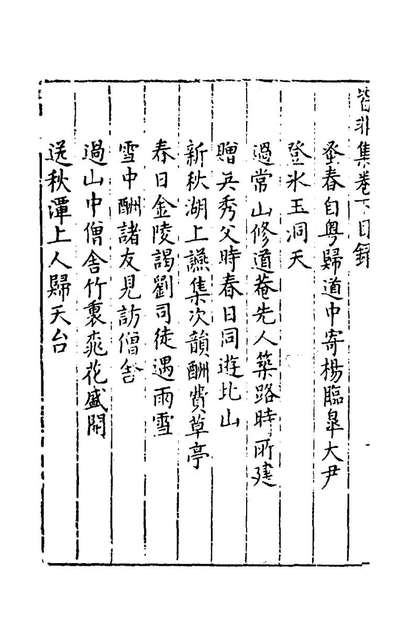 皆非集卷下目録
蚤春自粤歸道中寄楊臨臯大尹
登水玉洞天
過常山修道菴先人築路時所建
贈吴秀父時春日同遊北山
新秋湖上讌集次韻酬費草亭
春日金陵謁劉司徒遇雨雪
雪中酬諸友見訪僧舍
過山中僧舍竹裏桃花盛開
送秋潭上人歸天台